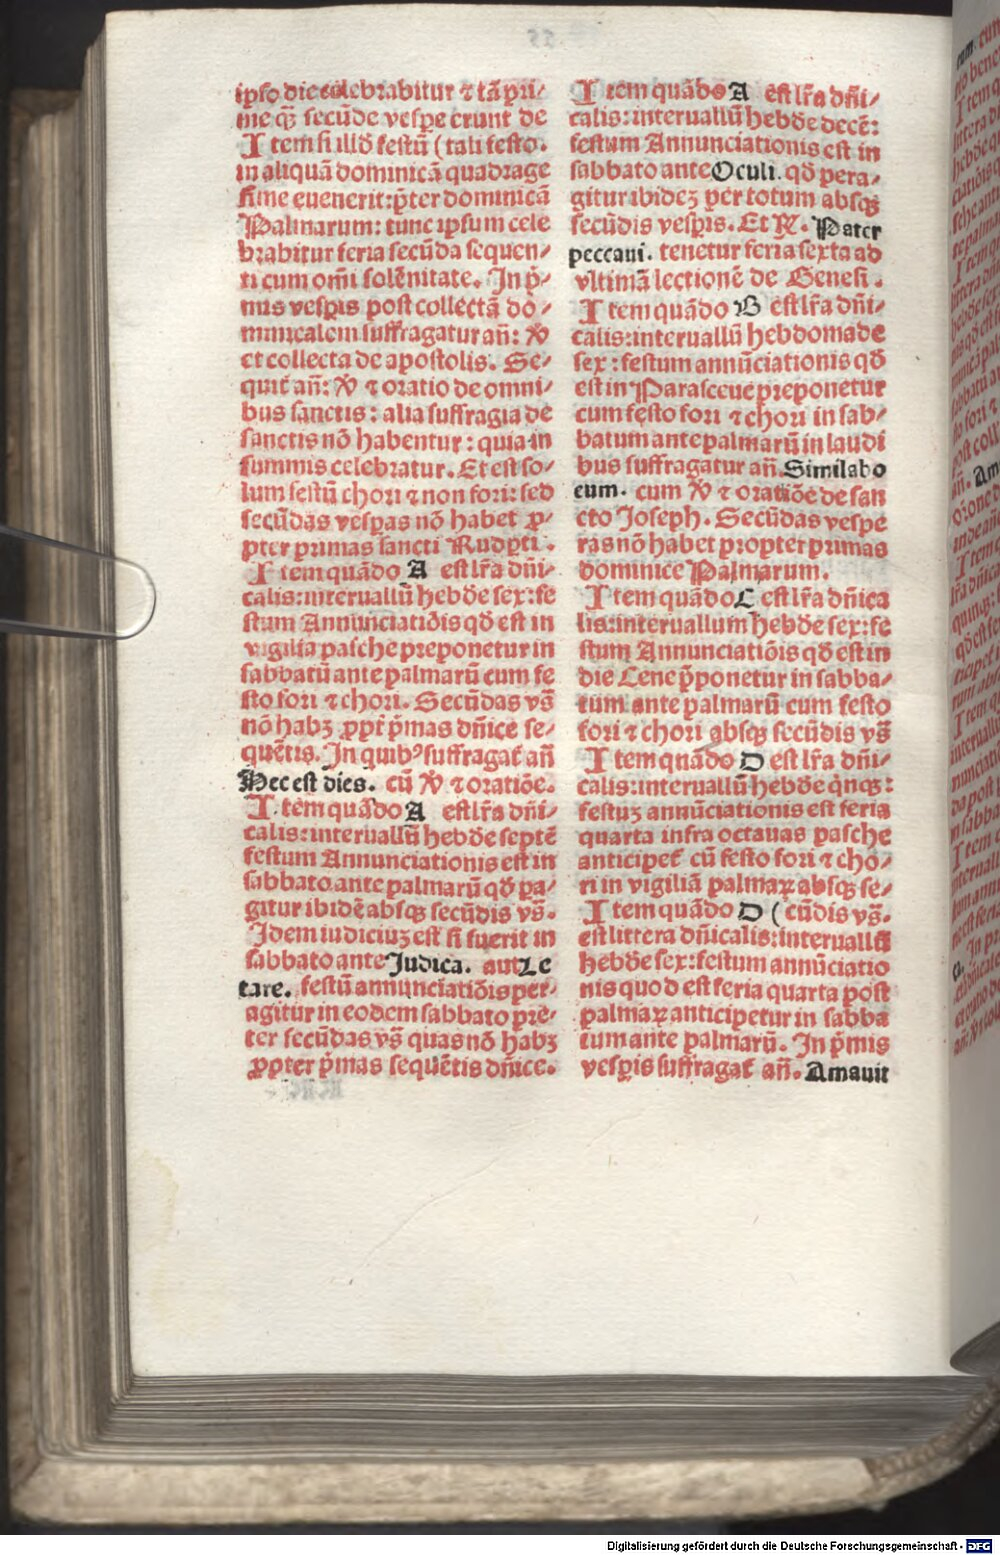 ipso die celebrabitur ⁊ tã pri⸗
me qꝫ secũde vespe erunt de
Item si illđ festũ (tali festo.
in aliquã dominicã quadrage
sime euenerit: p̃ter dominicã
Palmarum: tunc ipsum cele
brabitur feria secũda sequen⸗
ti cum om̃i solẽnitate. In p̃⸗
mis vesp̲is post collectã do⸗
minicalem suffragatur añ: ℣
et collecta de apostolis. Se⸗
quit̃ añ: ℣ ⁊ oratio de omni⸗
bus sanctis: alia suffragia de
sanctis nõ habentur: quia in
summis celebratur. Et est so⸗
lum festũ chori ⁊ non fori: sed
secũdas vesp̲as nõ habet ꝓ⸗
pter primas sancti Rudp̲ti.
Item quãdo A est lr̃a dñi⸗
calis: interuallũ hebđe sex: fe
stum Annunciatiõis qđ est in
vigilia pasche preponetur in
sabbatũ ante palmarũ cum fe
sto fori ⁊ chori. Secũdas vs̃
nõ habꝫ ꝓpt̃ p̃mas dñice se⸗
quẽtis. In quibꝰ suffragat̃ añ
Hec est dies. cũ ℣ ⁊ oratiõe.
Item quãdo A est lr̃a dñi⸗
calis: interuallũ hebđe septẽ
festum Annunciationis est in
sabbato ante palmarũ qđ pa⸗
gitur ibidẽ absqꝫ secũdis vs̃.
Idem iudiciuꝫ est si fuerit in
sabbato ante Judica. aut Le
tare. festũ annunciatiõis per⸗
agitur in eodem sabbato pre⸗
ter secũdas vs̃ quas nõ habꝫ
ꝓpter p̃mas sequẽtis dñice.
Item quãdo A est lr̃a dñi⸗
calis: interuallũ hebđe decẽ:
festum Annunciationis est in
sabbato ante Oculi. qđ pera⸗
gitur ibideꝫ per totum absqꝫ
secũdis vesp̲is. Et ℟. Pater
peccaui. tenetur feria sexta ad
vltimã lectionẽ de Genesi.
Item quãdo B est lr̃a dñi⸗
calis: interuallũ hebdomade
sex: festum annũciationis qđ
est in Parasceue preponetur
cum festo fori ⁊ chori in sab⸗
batum ante palmarũ in laudi
bus suffragatur añ. Similabo
eum. cum ℣ ⁊ oratiõe de san
cto Joseph. Secũdas vespe
ras nõ habet propter primas
dominice Palmarum.
Item quãdo C est lr̃a dñica
lis: interuallum hebđe sex: fe
stum Annunciatiõis qđ est in
die Cene p̃ponetur in sabba⸗
tum ante palmarũ cum festo
fori ⁊ chori absqꝫ secũdis vs̃
Item quãdo D est lr̃a dñi⸗
calis: interuallũ hebđe q̃nqꝫ:
festuꝫ annũciationis est feria
quarta infra octauas pasche
anticipet̃ cũ festo fori ⁊ cho⸗
ri in vigiliã palmaꝝ absqꝫ se⸗
Item quãdo D (cũdis vs̃.
est littera dñicalis: interuallũ
hebđe sex: festum annũciatio
nis quod est feria quarta post
palmaꝝ anticipetur in sabba
tum ante palmarũ. In p̃mis
vesp̲is suffragat̃ añ. Amauit
Digitalisierung gefördert durch die Deutsche Forschungsgemeinschaft - DFG